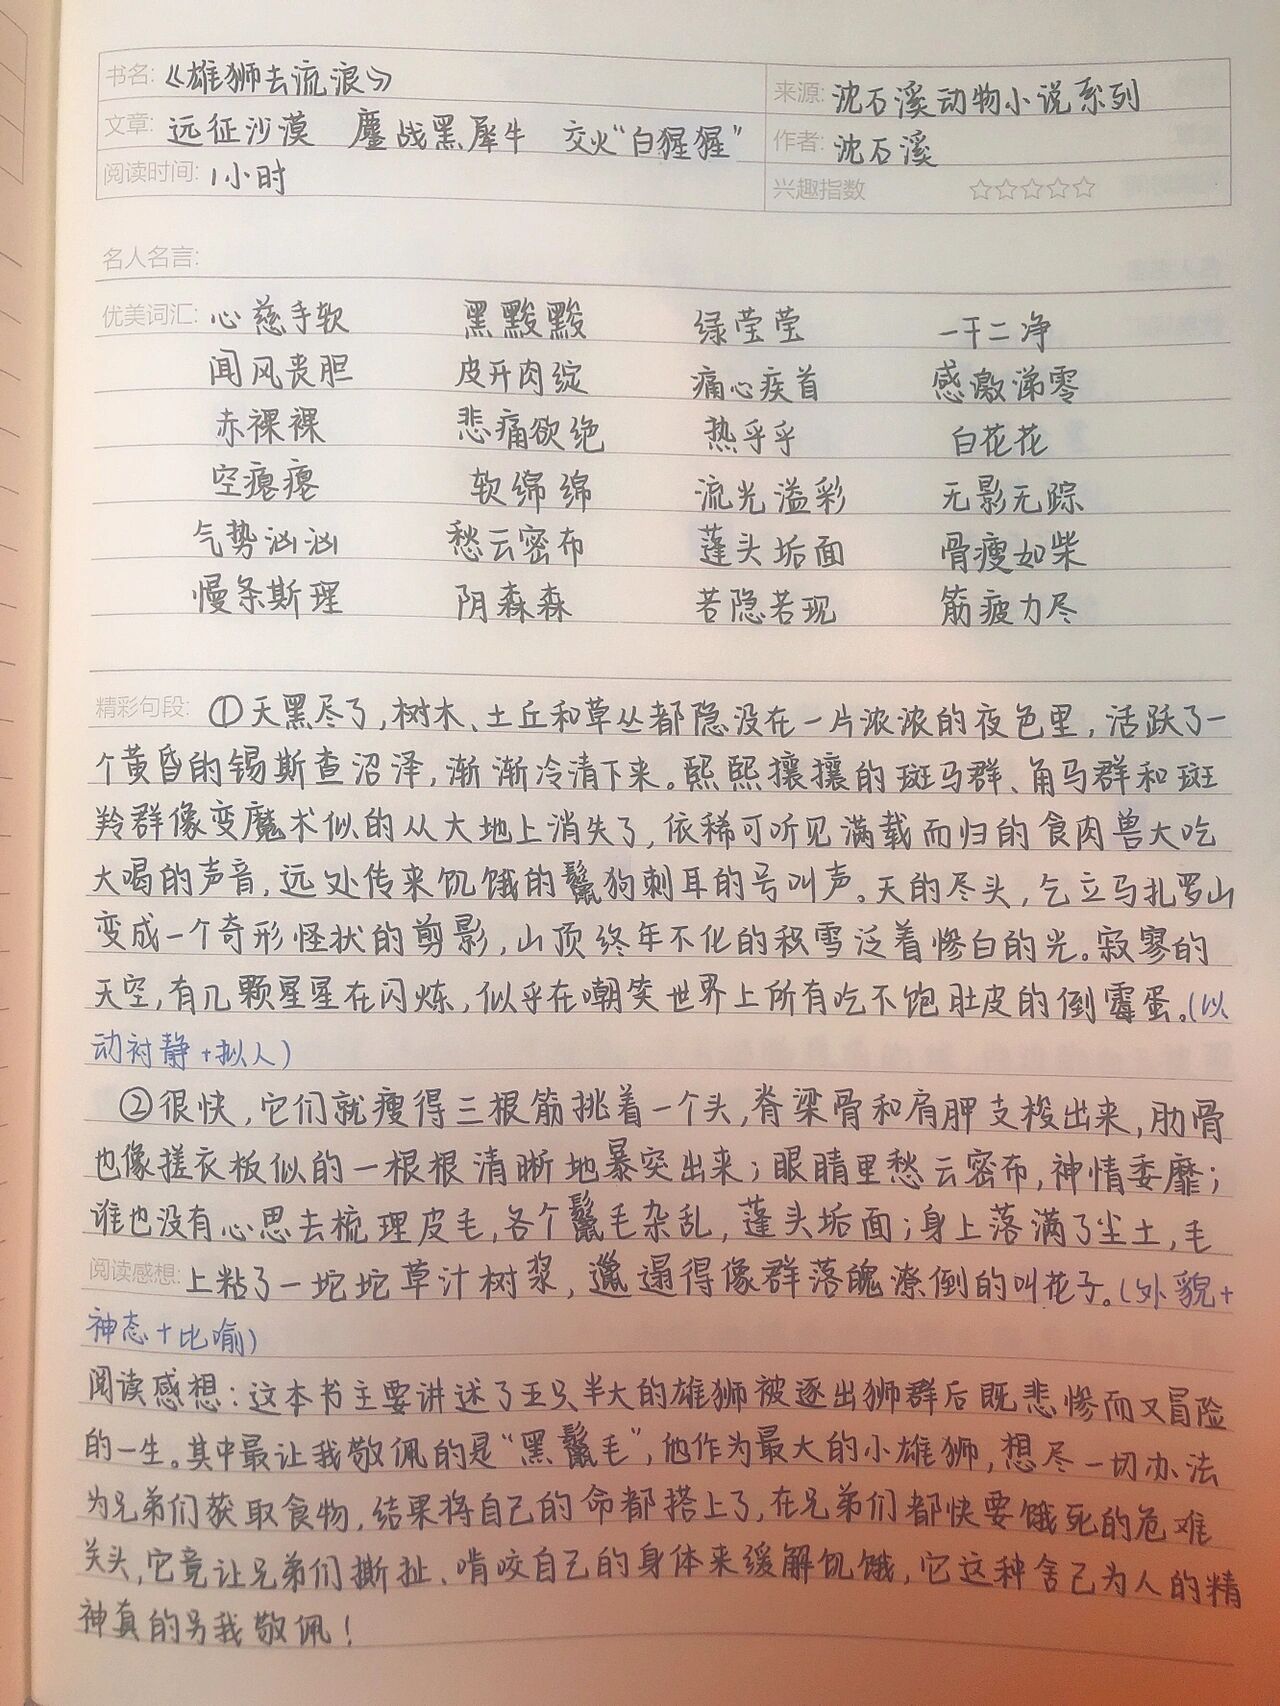 书名:《雄狮去流浪》
来源:沈石溪动物小说系列
文章:远征沙漠 鏖战黑犀牛 交火“白猩猩”
作者:沈石溪
阅读时间:1小时
兴趣指数 ☆☆☆☆☆
名人名言:
优美词汇:心慈手软 黑黢黢 绿莹莹 一干二净
闻风丧胆 皮开肉绽 痛心疾首 感激涕零
赤裸裸 悲痛欲绝 热乎乎 白花花
空瘪瘪 软绵绵 流光溢彩 无影无踪
气势汹汹 愁云密布 蓬头垢面 骨瘦如柴
慢条斯理 阴森森 若隐若现 筋疲力尽
精彩句段:①天黑尽了,树木、土丘和草丛都隐没在一片浓浓的夜色里,活跃了一
个黄昏的锡斯查沼泽,渐渐冷清下来。熙熙攘攘的斑马群、角马群和斑
羚群像变魔术似的从大地上消失了,依稀可听见满载而归的食肉兽大吃
大喝的声音,远处传来饥饿的鬣狗刺耳的号叫声。天的尽头,乞立马扎罗山
变成一个奇形怪状的剪影,山顶终年不化的积雪泛着惨白的光。寂寥的
天空,有几颗星星在闪烁,似乎在嘲笑世界上所有吃不饱肚皮的倒霉蛋。(以
动衬静+拟人)
②很快,它们就瘦得三根筋挑着一个头,脊梁骨和肩胛支棱出来,肋骨
也像搓衣板似的一根根清晰地暴突出来;眼睛里愁云密布,神情委靡;
谁也没有心思去梳理皮毛,各个鬣毛杂乱,蓬头垢面;身上落满了尘土,毛
阅读感想:上粘了一坨坨草汁树浆,邋遢得像群落魄潦倒的叫花子。(外貌+
神态+比喻)
阅读感想:这本书主要讲述了五只半大的雄狮被逐出狮群后既悲惨而又冒险
的一生。其中最让我敬佩的是“黑鬣毛”,他作为最大的小雄狮,想尽一切办法
为兄弟们获取食物,结果将自己的命都搭上了,在兄弟们都快要饿死的危难
关头,它竟让兄弟们撕扯、啃咬自己的身体来缓解饥饿,它这种舍己为人的精
神真的另我敬佩!